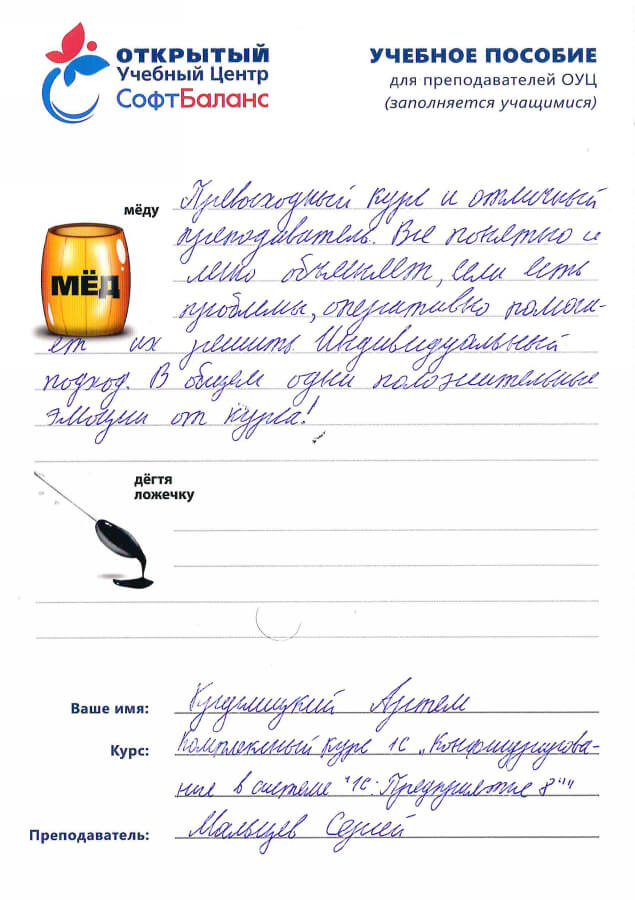 ОТКРЫТЫЙ
Учебный Центр
СофтБаланс
УЧЕБНОЕ ПОСОБИЕ
для преподавателей ОУЦ
(заполняется учащимися)
мёду
МЁД
Превосходный курс и отличный
преподаватель. Все понятно и
легко объясняет, если есть
проблемы, оперативно помога-
ет их решить Индивидуальный
подход. В общем одни положительные
эмоции от курса!
дёгтя
ложечку
Ваше имя: Артем
Курс: Комплексный курс 1С „Конфигурирова-
ние в системе "1С: Предприятие 8""
Преподаватель: Мальцев Сергей